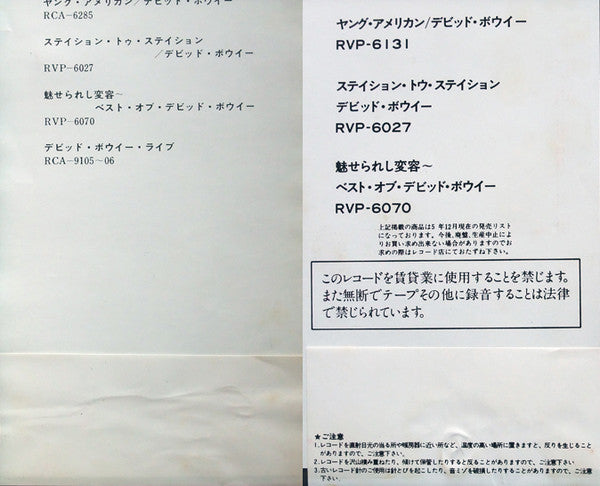 ヤング・アメリカン/デビッド・ボウイー
RCA-6285
ステイション・トゥ・ステイション
/デビッド・ボウイー
RVP-6027
魅せられし変容〜
ベスト・オブ・デビッド・ボウイー
RVP-6070
デビッド・ボウイー・ライブ
RCA-9105〜06
ヤング・アメリカン/デビッド・ボウイー
RVP-6131
ステイション・トゥ・ステイション
デビッド・ボウイー
RVP-6027
魅せられし変容〜
ベスト・オブ・デビッド・ボウイー
RVP-6070
上記掲載の商品は5 年12月現在の発売リスト
になっております。今後、廃盤、生産中止によ
りお買い求め出来ない場合がありますのでお
求めの際はレコード店にておたずね下さい。
このレコードを賃貸業に使用することを禁じます。
また無断でテープその他に録音することは法律
で禁じられています。
★ご注意
1.レコードを直射日光の当る所や暖房器に近い所など、温度の高い場所に置きますと、反りを生じること
がありますので、ご注意下さい。
2.レコードを沢山積み重ねたり、傾けて保管したりすると反ることがありますので ご注意下さい
3.古いレコード針のご使用は針とびを起こしたり、音ミゾを破損したりすることがありますので、ご注意
下さい。